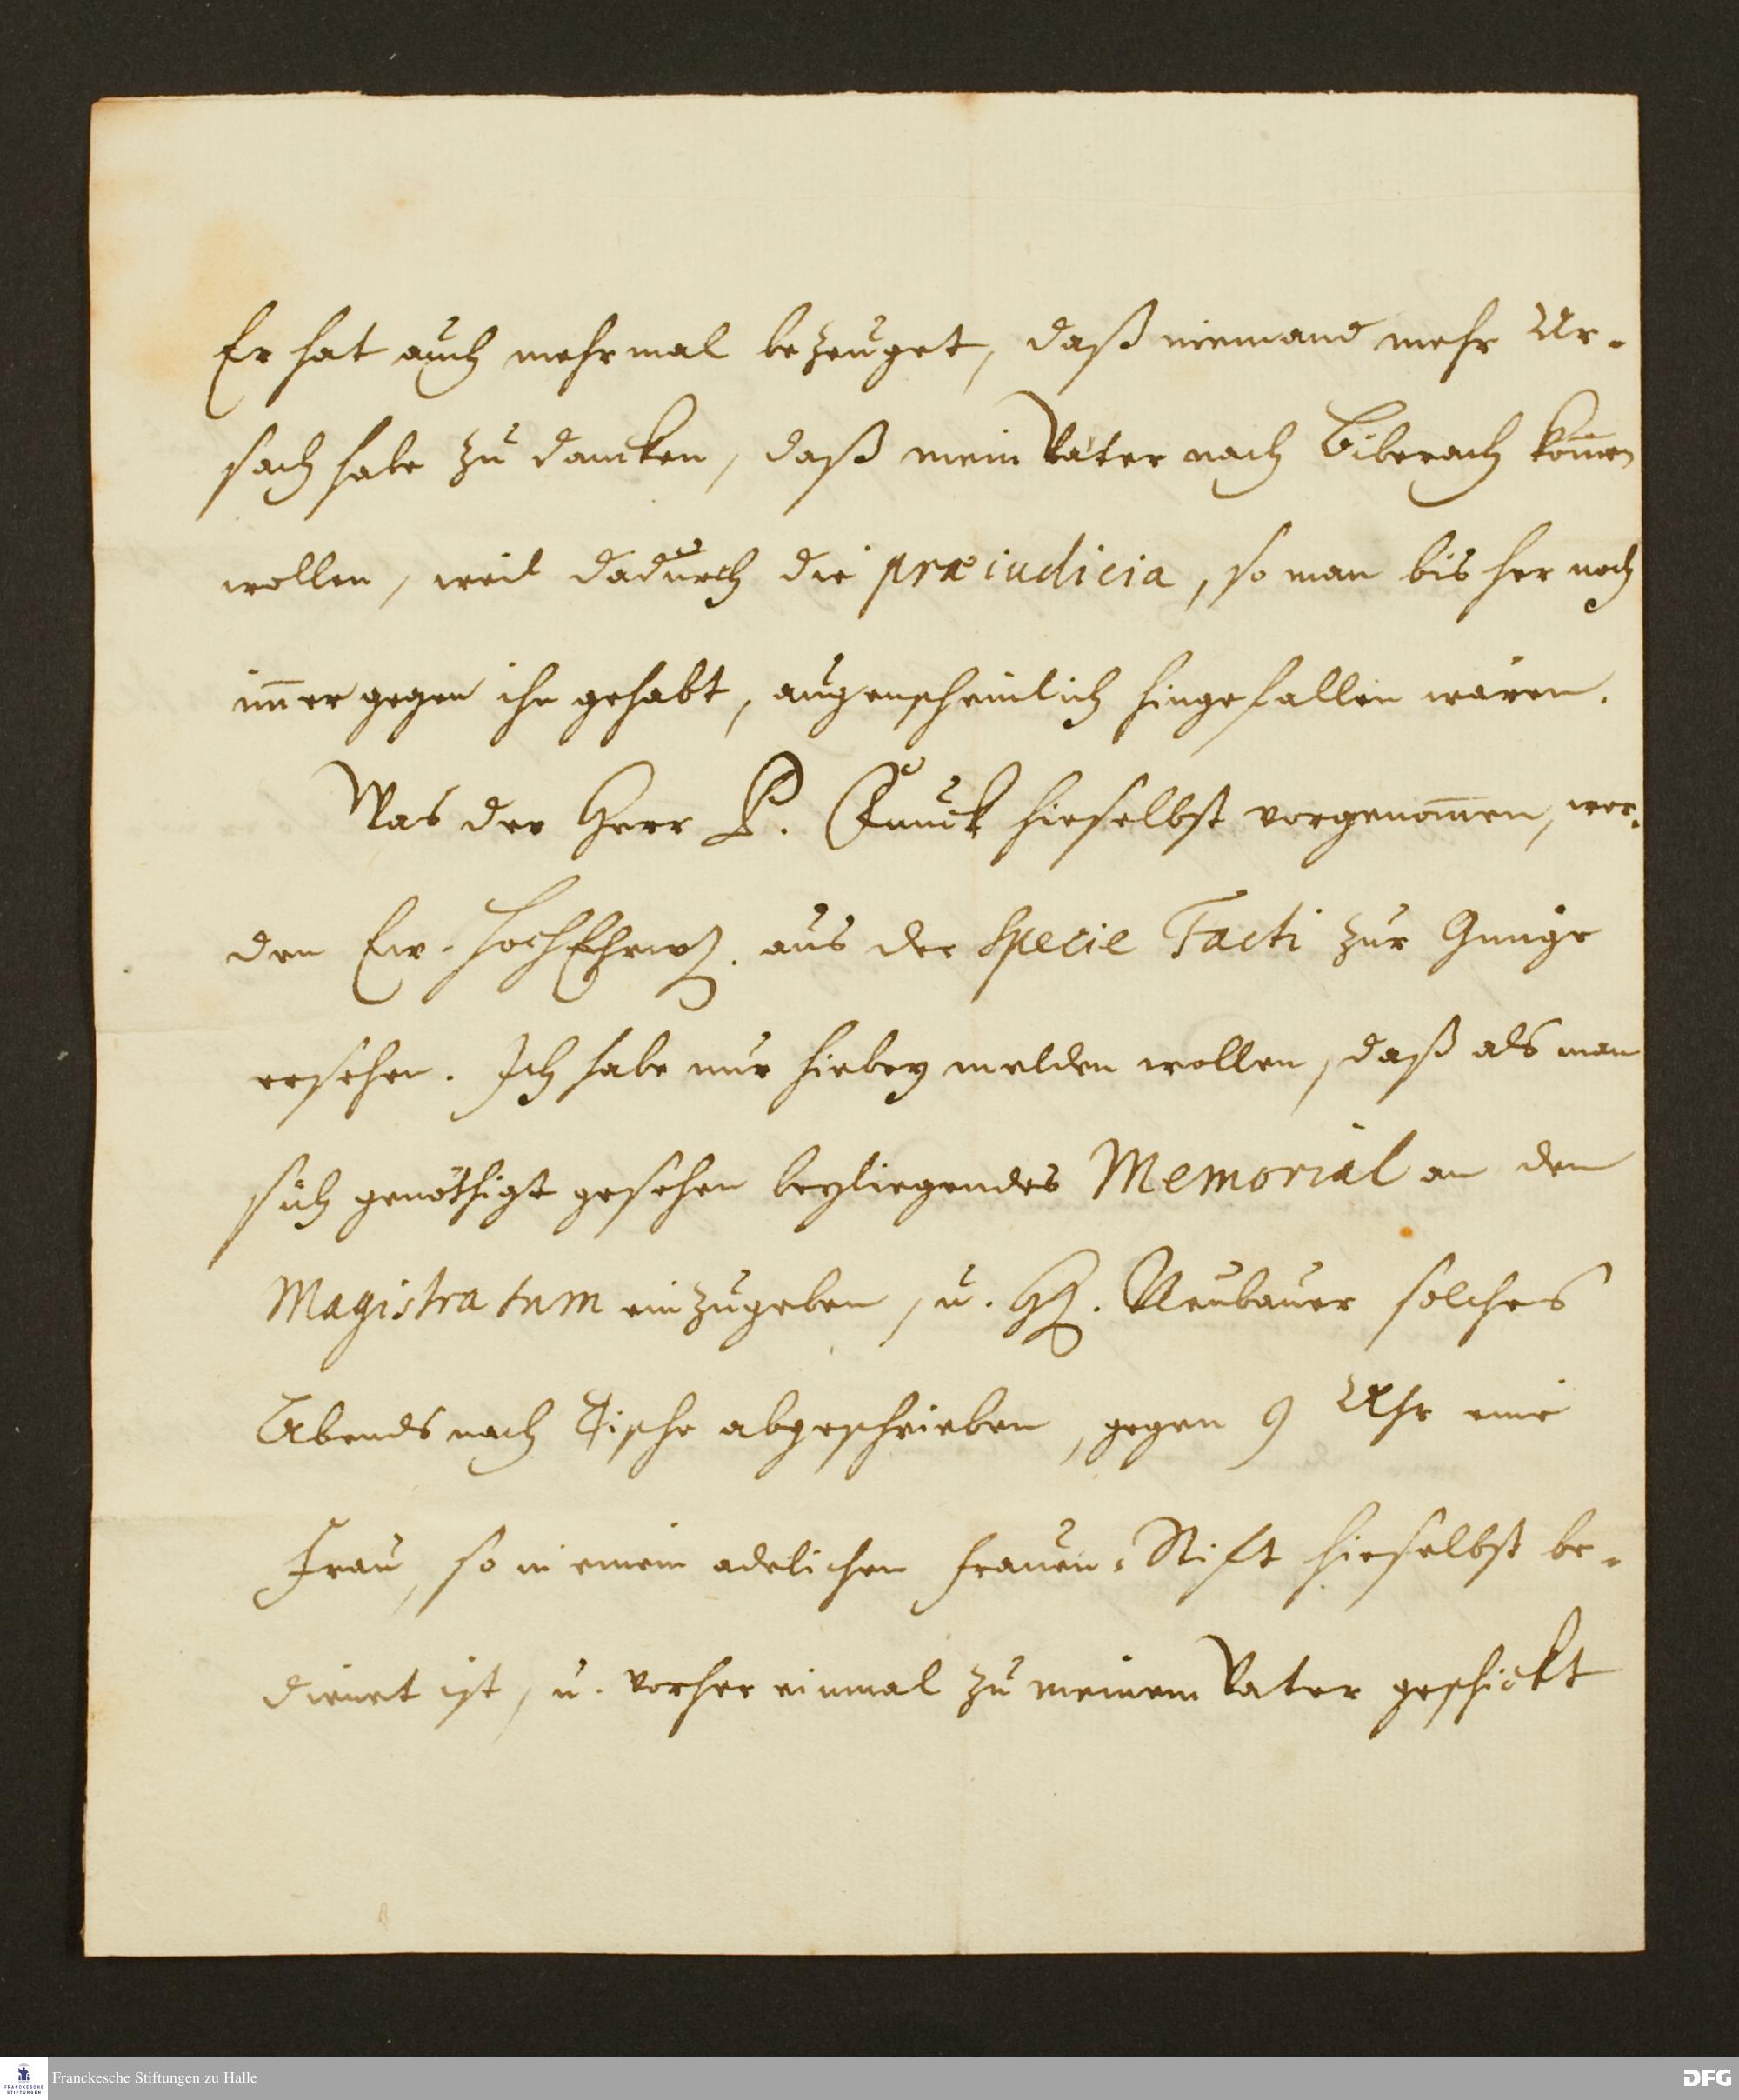 Er hat auch mehrmal bezeuget, daß niemand mehr Ur-
sach habe zu dancken, daß mein Vater nach Biberach kom̅en
wollen, weil dadurch die præiudicia, so man bis her noch
im̅er gegen ihn gehabt, augenscheinlich hingefallen wären.
Was der Herr P. Funck hieselbst vorgenom̅en, wer-
den Ew. HochEhrw. aus der Specie Facti zur Gnüge
ersehen. Ich habe nur hiebey melden wollen, daß als man
sich genöthigt gesehen beyliegendes Memorial an den
Magistratum einzugeben, u. H. Neubauer solches
Abends nach Tische abgeschrieben, gegen 9 Uhr eine
Frau, so in einem adelichen Frauen-Stift hieselbst be-
dienet ist, u. vorher einmal zu meinem Vater geschickt
Franckesche Stiftungen zu Halle
FRANCKESCHE
STIFTUNGEN
DFG